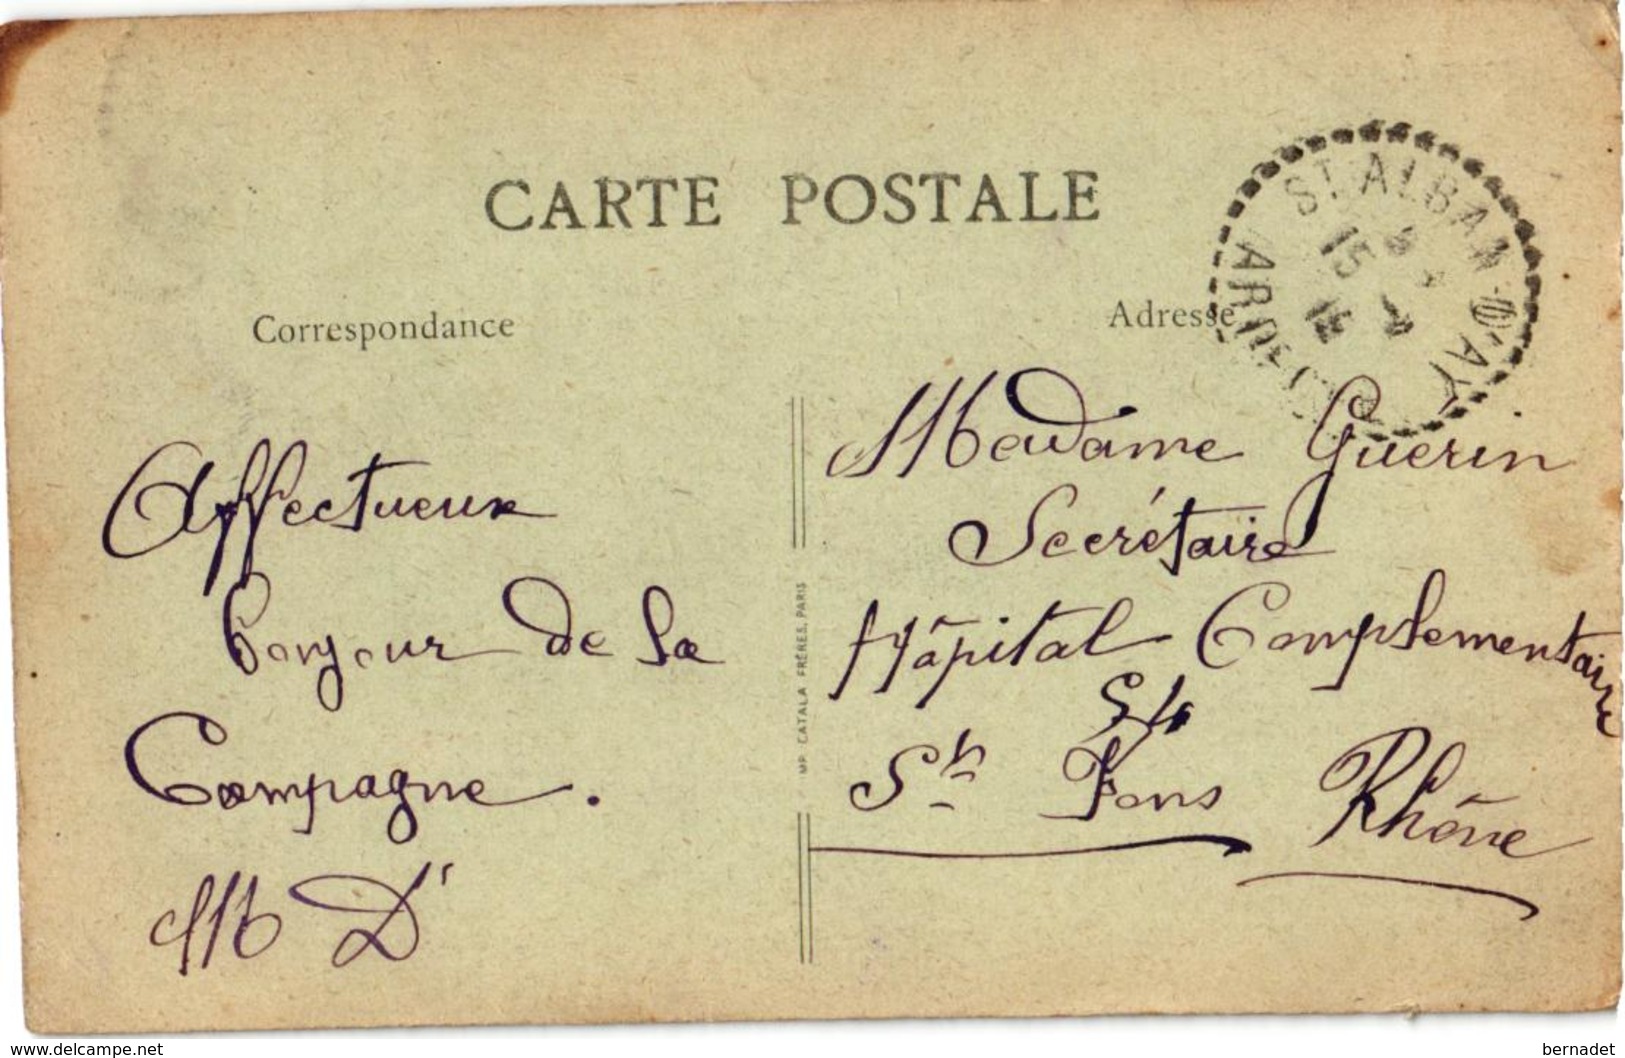 CARTE POSTALE
Correspondance
Adresse
ST ALBAN D'AY
15
ARDECHE
Affectueux
bonjour de la
Campagne.
M D
Madame Guerin
Secrétaire
Hôpital Complementaire
St Fons Rhône
IMP. CATALA FRÈRES, PARIS
www.delcampe.net
bernadet